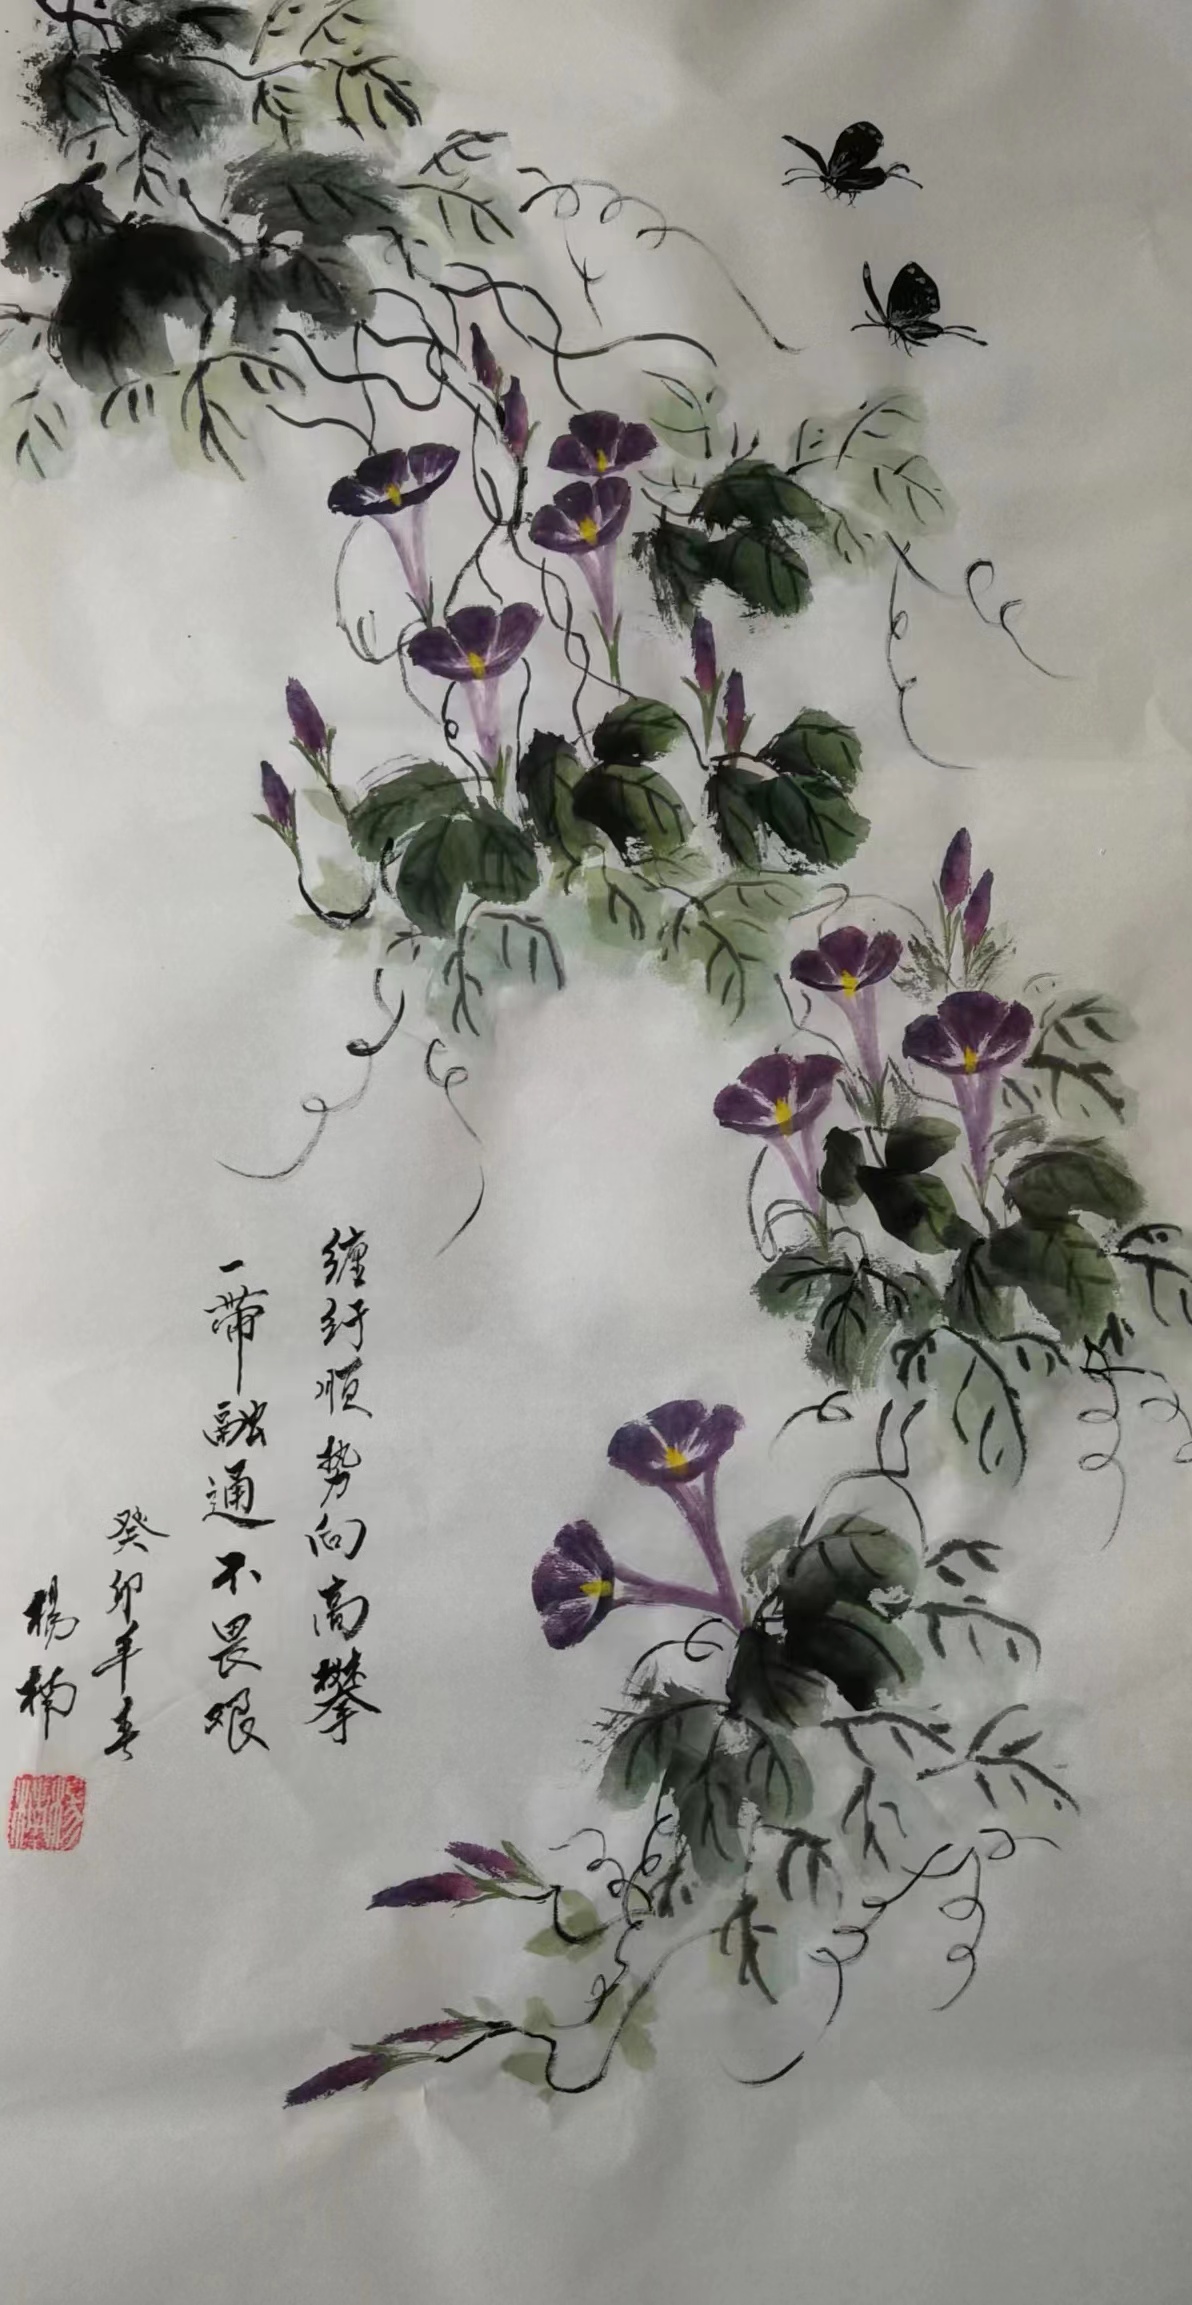 缠纡顺势向高攀
一带融通不畏艰
癸卯年春
杨楠